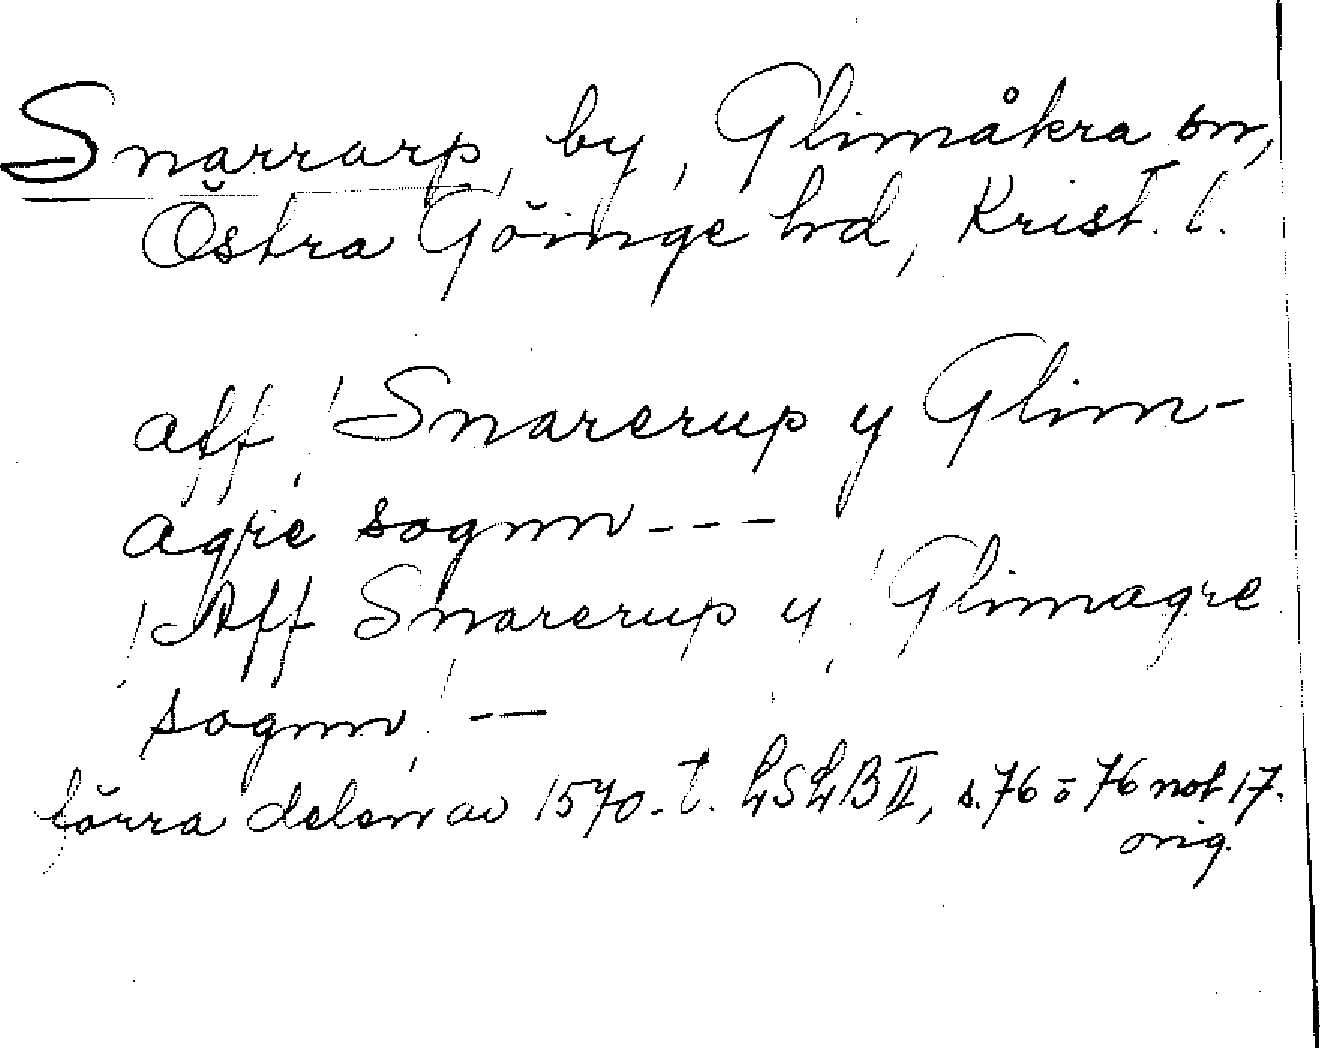 Snärrarp, by, Glimåkra sn,
Östra Göinge hd, Krist. l.
aff Snarerup y Glim-
agre sognn ---
Aff Snarerup y Glimagre
sognn --
förra delen av 1570-t. LSLB II, s. 76 o 76 not 17.
orig.